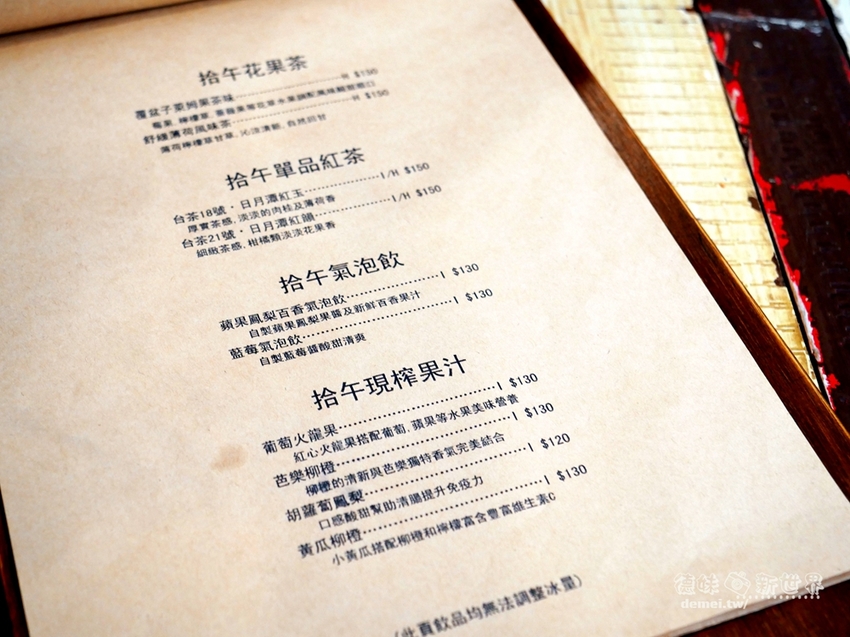 拾午花果茶
覆盆子萊姆果茶味……………H $150
莓果,檸檬草,薔薇果等花草水果調配風味酸甜順口
舒緩薄荷風味茶……………H $150
薄荷檸檬草甘草,沁涼清新,自然回甘
拾午單品紅茶
台茶18號・日月潭紅玉……………I/H $150
厚實茶感,淡淡的肉桂及薄荷香
台茶21號・日月潭紅韻……………I/H $150
細緻茶感,柑橘類淡淡花果香
拾午氣泡飲
蘋果鳳梨百香氣泡飲……………I $130
自製蘋果鳳梨果醬及新鮮百香果汁
藍莓氣泡飲……………I $130
自製藍莓醬酸甜清爽
拾午現榨果汁
葡萄火龍果……………I $130
紅心火龍果搭配葡萄,蘋果等水果美味營養
芭樂柳橙……………I $130
柳橙的清新與芭樂獨特香氣完美結合
胡蘿蔔鳳梨……………I $120
口感酸甜幫助清腸提升免疫力
黃瓜柳橙……………I $130
小黃瓜搭配柳橙和檸檬富含豐富維生素C
(此頁飲品均無法調整冰量)
新世界
demei.tw/